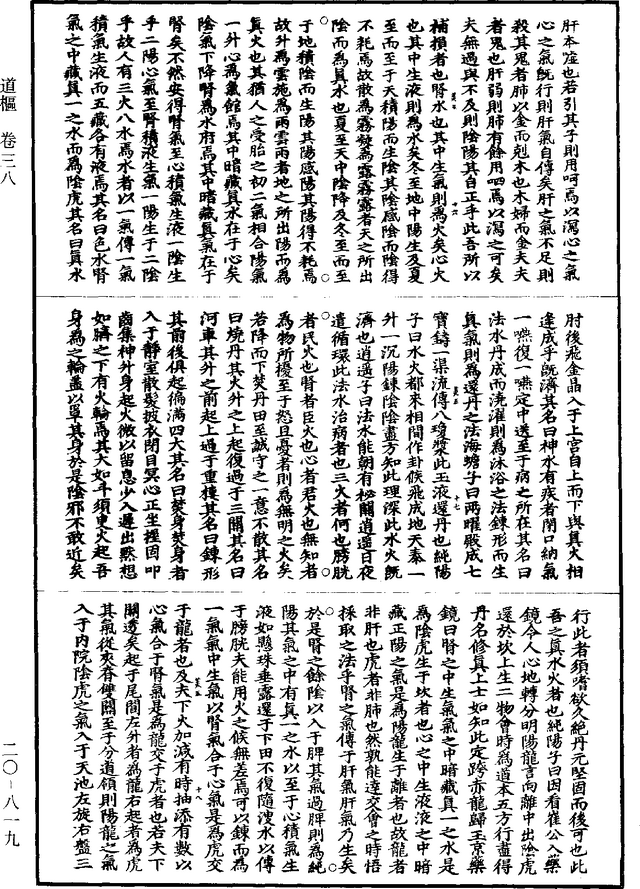 道樞 卷三八
二〇-八一九
肝本淫也若引其子則用呵焉以瀉心之氣
心之氣旣行則肝氣自傳矣肝之氣不足則
殺其鬼者肺以金而剋木也木婦而金夫夫
者鬼也肝弱則肺有餘用呬焉以瀉之可矣
夫無過與不及則陰陽其自正乎此吾所以
補損者也腎水也其中生氣則爲火矣心火
也其中生液則爲水矣冬至地中陽生及夏
至而至于天積陽而生陰其陰感陰而陰得
不耗焉故散爲霧結爲露霧露者天之所出
陰而爲眞水也夏至天中陰降及冬至而至
于地積陰而生陽其陽感陽其陽得不耗焉
故升爲雲施爲雨雲雨者地之所出陽而爲
眞火也其猶人之受胎之初二氣相合陽氣
一升心爲氣館焉其中暗藏眞水在于心矣
陰氣下降腎爲水府焉其中暗藏眞氣在于
腎矣不然安得腎氣至心積氣生液一陰生
乎二陽心氣至腎積液生氣一陽生于二陰
乎故人有三火八水焉水者以一氣傳一氣
積氣生液而五藏各有液焉其名曰色水腎
氣之中藏眞一之水而爲陰虎其名曰眞水
肘後飛金晶入于上宮自上而下與眞火相
逢成乎旣濟其名曰神水有疾者閉口納氣
一嚥復一嚥定中送至于病之所在其名曰
法水丹成而澆灌則爲沐浴之法鍊形而生
眞氣則爲還丹之法海蟾子曰兩曜殿成七
寶鑄一渠流傳八瓊漿此玉液還丹也純陽
子曰水火都來相間作卦候飛成地天泰一
升一沉陽鍊陰陰盡方知此理深此水火旣
濟也逍遙子曰法水能朝有祕關逍遙日夜
遣循環此法水治病者也三火者何也膀胱
者民火也腎者臣火也心者君火也無知者
爲物所擾至于怒且憂者則爲無明之火矣
若降而下焚丹田至誠守之一意不散其名
曰燒丹其火升之上起復過于三關其名曰
河車其升之前起上過于重樓其名曰鍊形
其前後俱起徧滿四大其名曰焚身焚身者
入于靜室散髮披衣閉目冥心正坐握固叩
齒集神升身起火微以留息少入遲出黙想
如臍之下有火輪焉其大如斗須臾火起吾
身爲之輪蓋以罩其身於是陰邪不敢近矣
行此者須嗜欲久絕丹元堅固而後可也此
吾之眞水火者也純陽子曰因看崔公入藥
鏡令人心地轉分明陽龍言向離中出陰虎
還於坎上生二物會時爲道本五方行盡得
丹名修眞上士如知此定跨赤龍歸玉京藥
鏡曰腎之中生氣氣之中暗藏眞一之水是
爲陰虎生于坎者也心之中生液液之中暗
藏正陽之氣是爲陽龍生于離者也故龍者
非肝也虎者非肺也然孰能達交會之時悟
採取之法乎腎之氣傳于肝氣肝氣乃生矣
於是腎之餘陰以入于脾其氣過脾則爲純
陽其氣之中有眞一之水以至于心積氣生
液如懸珠垂露還于下田不復隨洩水以傳
于膀胱夫能用火之候無差焉可以鍊而爲
一氣氣中生氣以腎氣合于心氣是爲虎交
于龍者也及夫下火加減有時抽添有數以
心氣合于腎氣是爲龍交于虎者也若夫下
關透矣起于尾閭左外者爲龍右起者爲虎
其氣從夾脊雙關至于分道嶺則陽龍之氣
入于内院陰虎之氣入于天池左旋右盤三